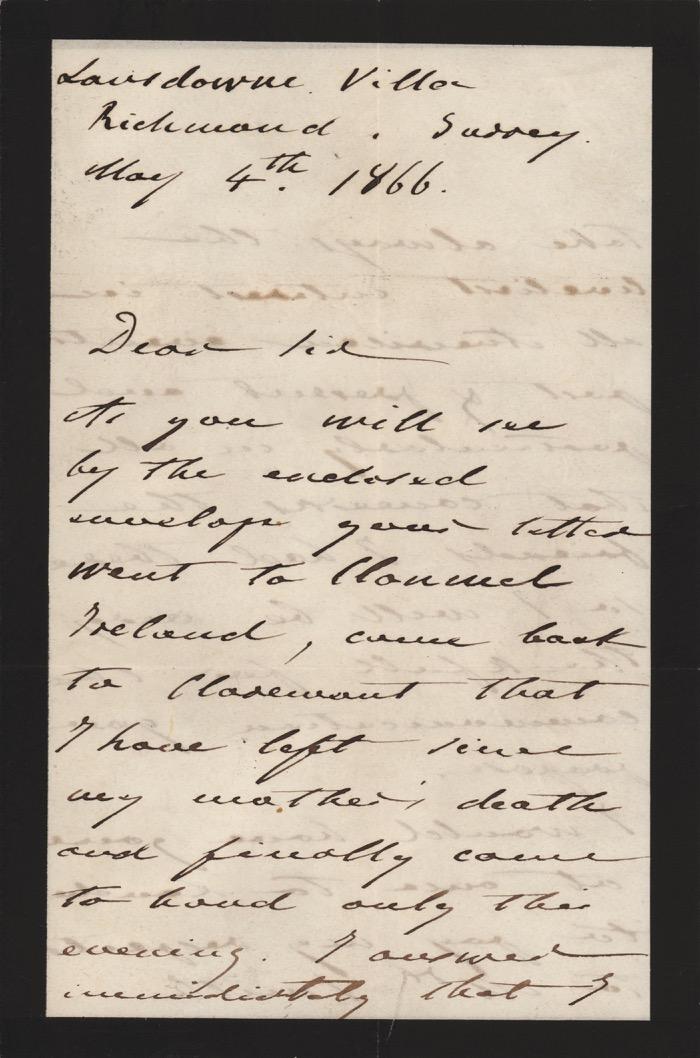 Lansdowne. Villa
Richmond. Surrey.
May 4th. 1866.
Dear Sir
As you will see
by the enclosed
envelope your letter
went to Clonmel
Ireland, came back
to Claremont that
I have left since
my mother's death
and finally came
to hand only this
evening. I answer
immediately that I